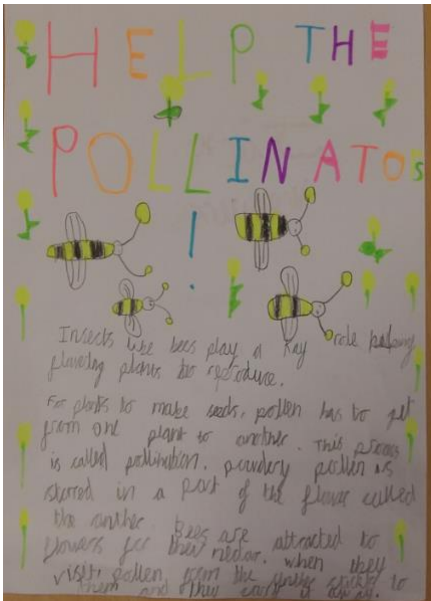 HELP THE
POLLINATORS
!
Insects like bees play a Kay role
flowering plants to reproduce.
For plants to make seeds, pollen has to get
from one plant to another. This process
is called pollination. powdery pollen is
stored in a part of the flower called
the anther. Bees are attracted to
flowers for their nectar. when they
visit, pollen from the anther sticks to
them and they carry it away.